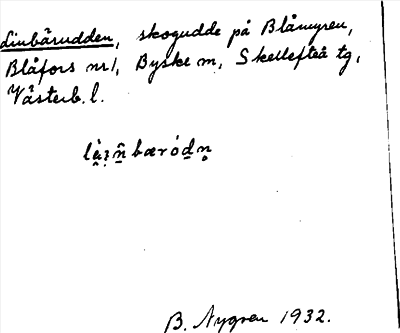 Linbärudden, skogudde på Blåmyren,
Blåfors nr 1, Byske sn, Skellefteå tg,
Västerb. l.
B. Nygren 1932.